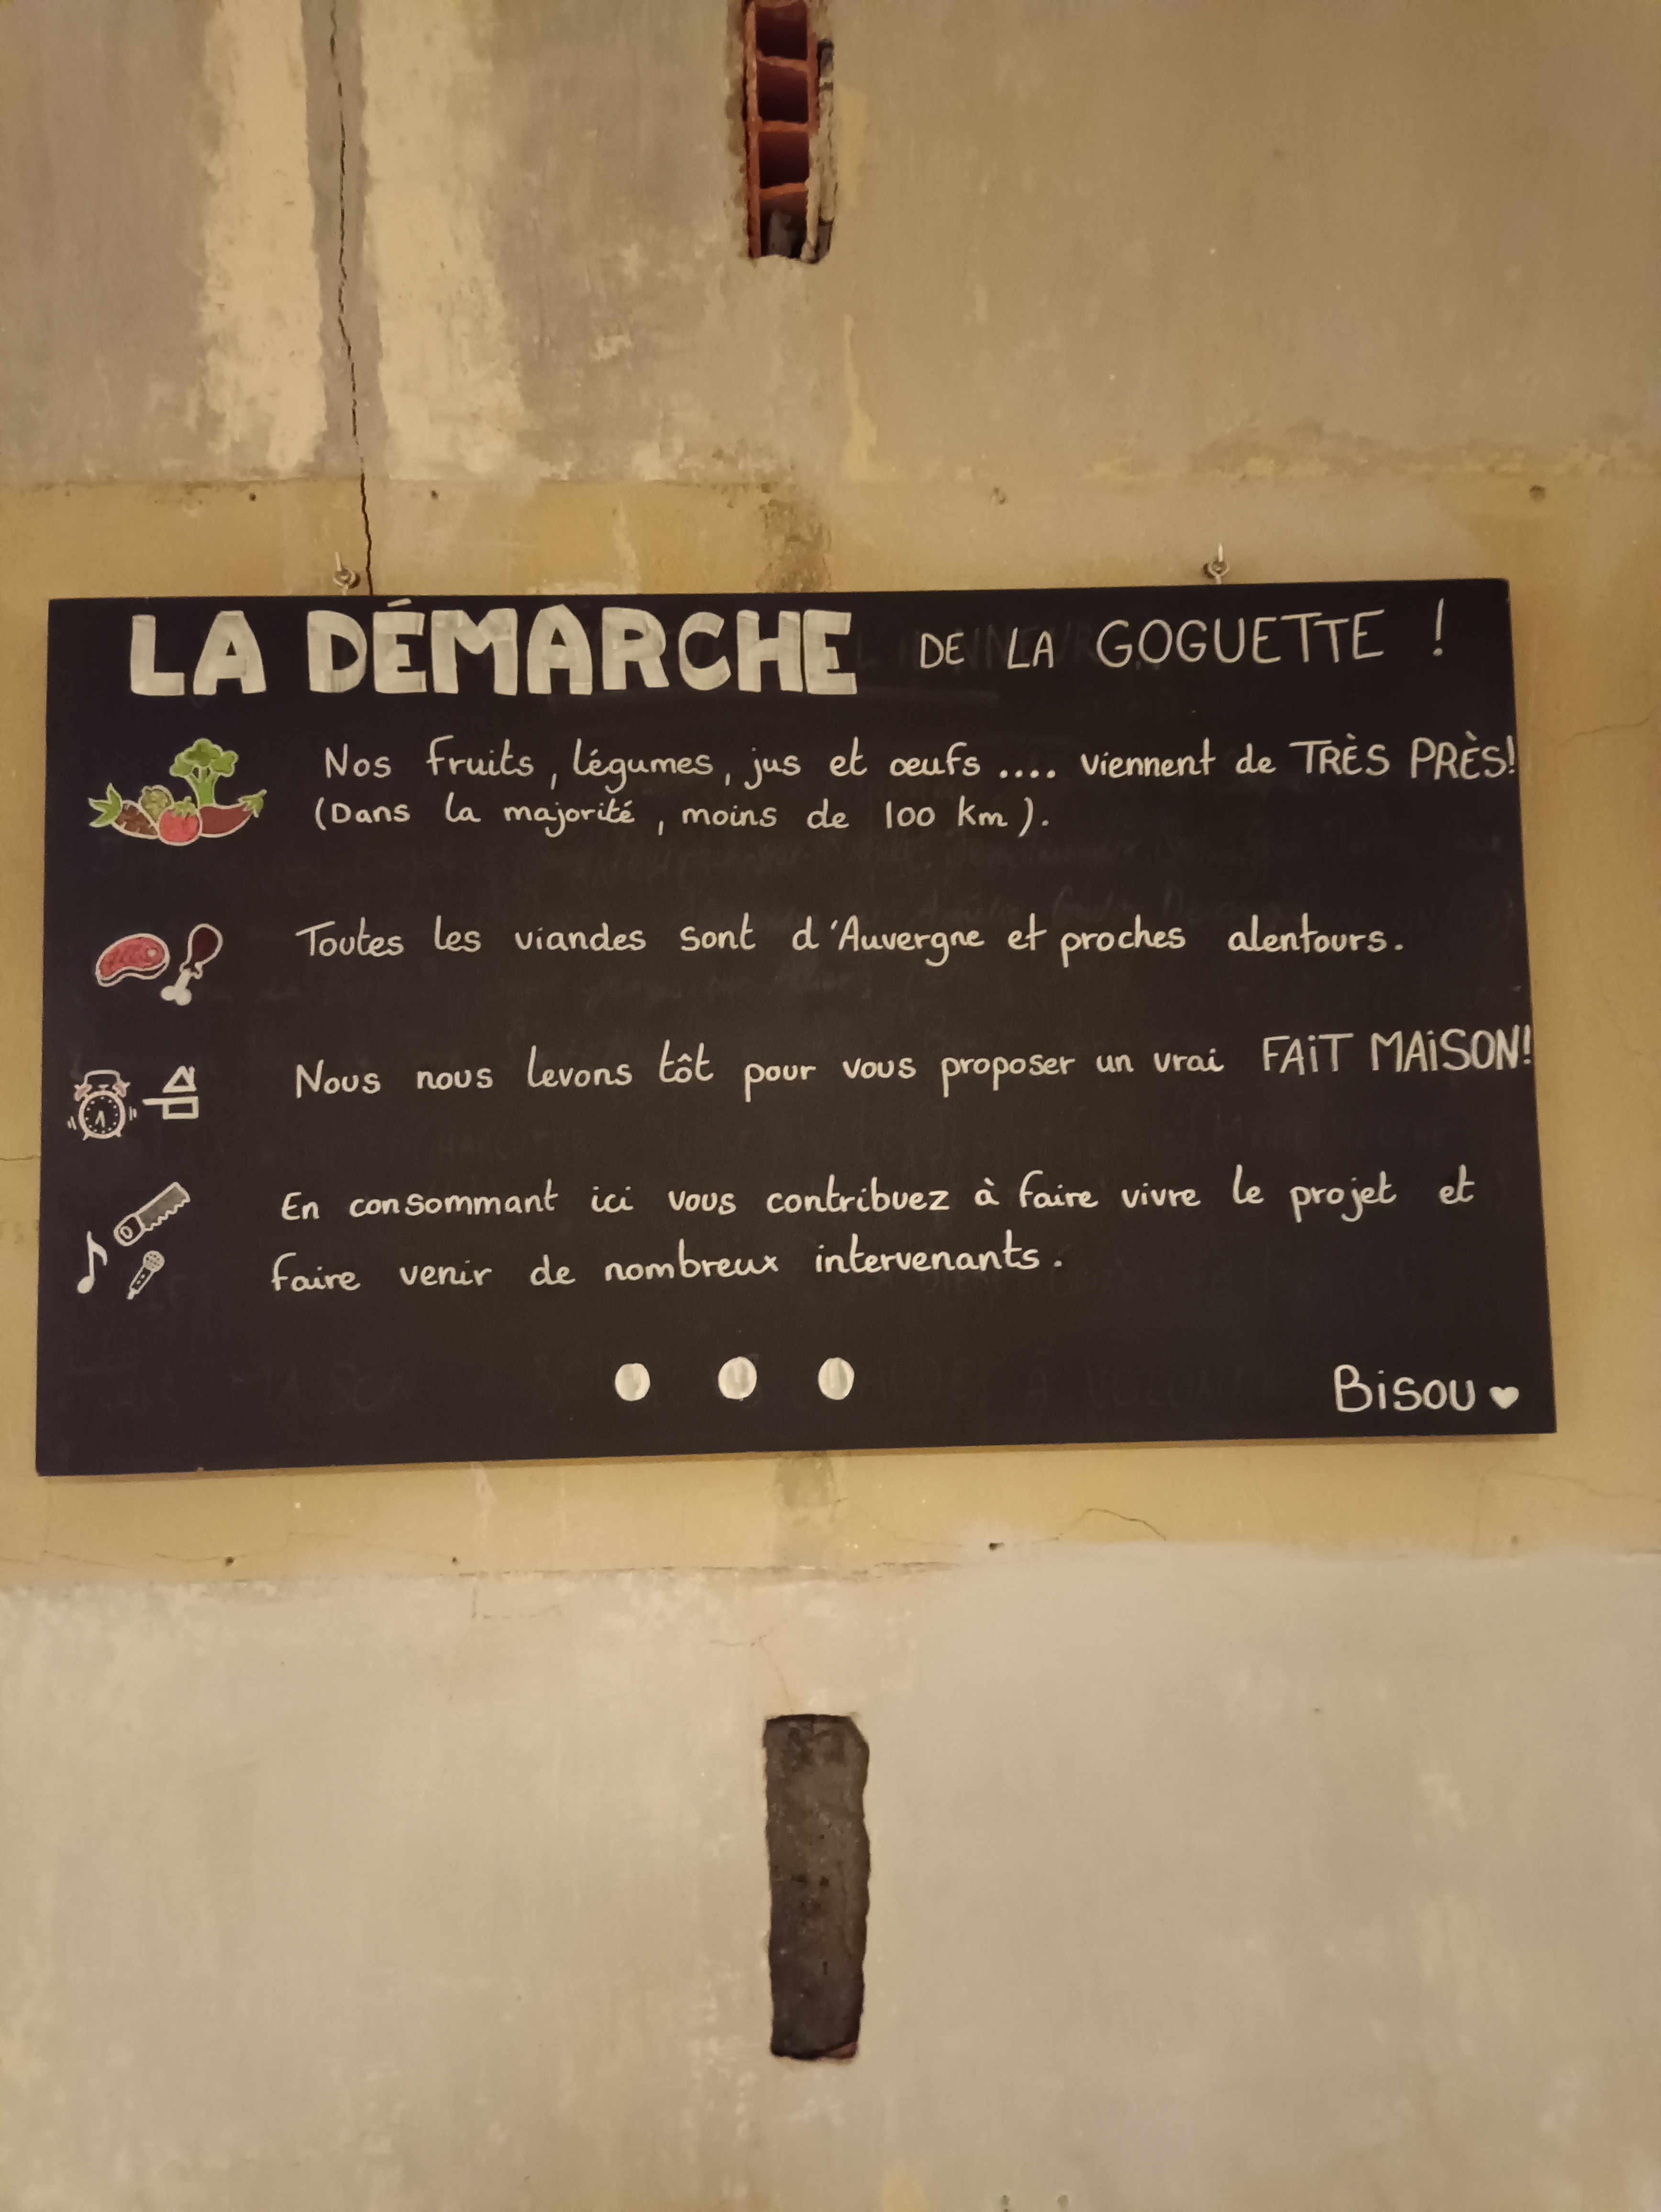 LA DÉMARCHE DE LA GOGUETTE !
Nos fruits, légumes, jus et œufs .... viennent de TRÈS PRÈS!
(Dans la majorité, moins de 100 km).
Toutes les viandes sont d'Auvergne et proches alentours.
Nous nous levons tôt pour vous proposer un vrai FAiT MAiSON!
En consommant ici vous contribuez à faire vivre le projet et
faire venir de nombreux intervenants.
Bisou